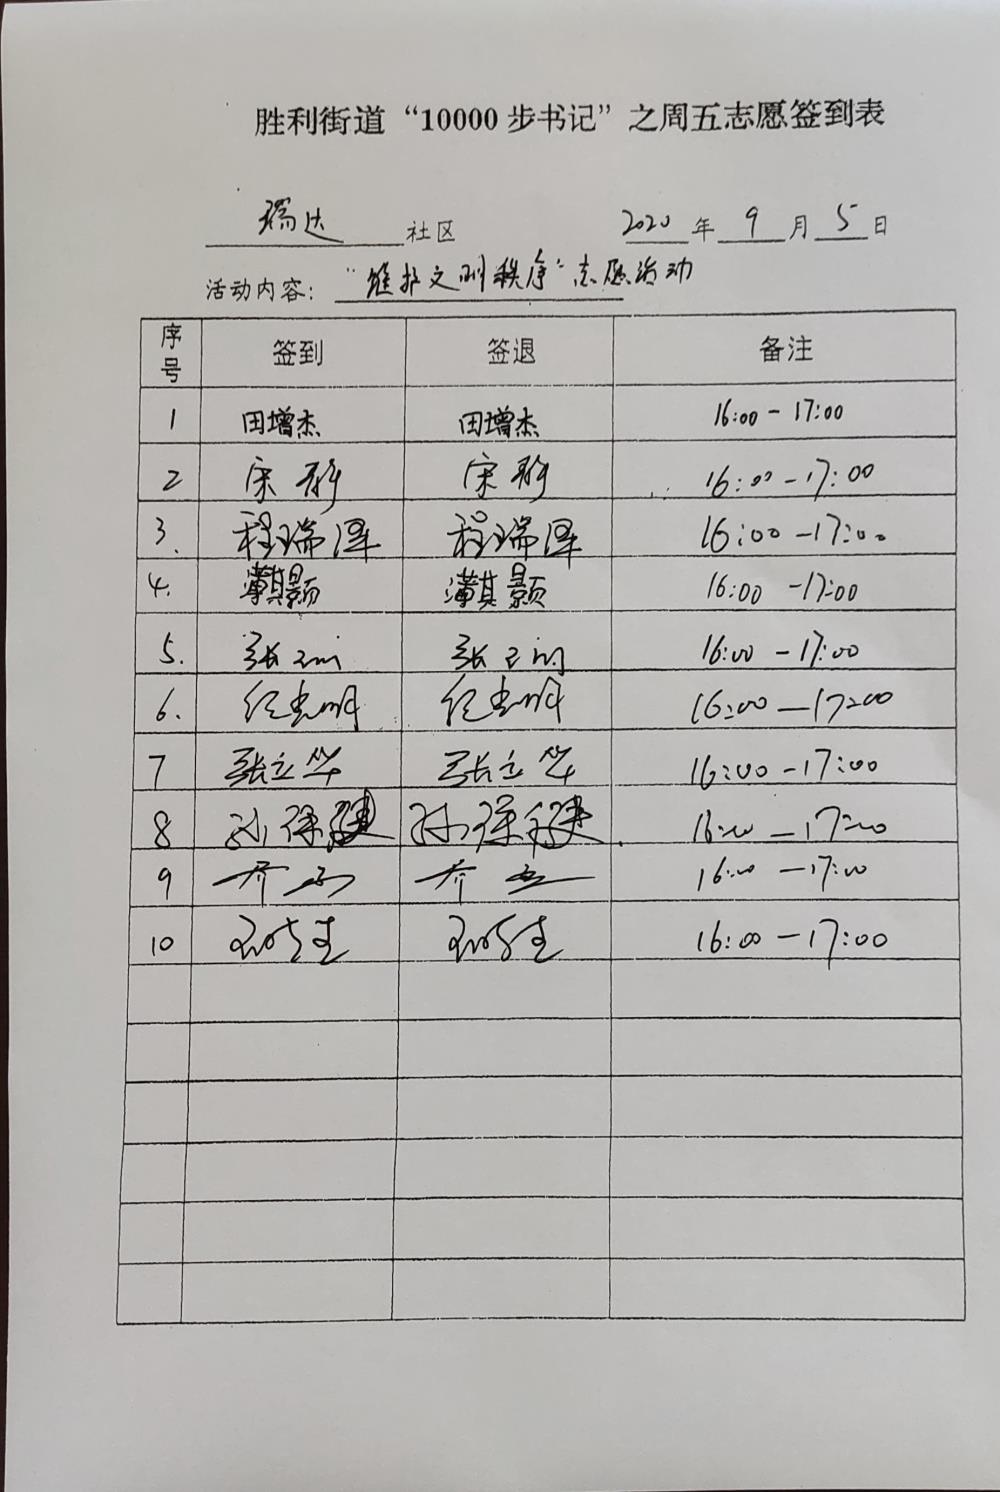 胜利街道“10000步书记”之周五志愿签到表
瑞达社区 2020年9月5日
活动内容：“维护文明秩序”志愿活动
序号 签到 签退 备注
1 田增杰 田增杰 16:00-17:00
2 宋 宋 16:00-17:00
3. 程瑞泽 程瑞泽 16:00-17:00
4. 薄其颢 薄其颢 16:00-17:00
5. 张 张 16:00-17:00
6. 明 明 16:00-17:00
7 张立华 张立华 16:00-17:00
8 孙 孙 16:00-17:00
9 乔 乔 16:00-17:00
10 16:00-17:00